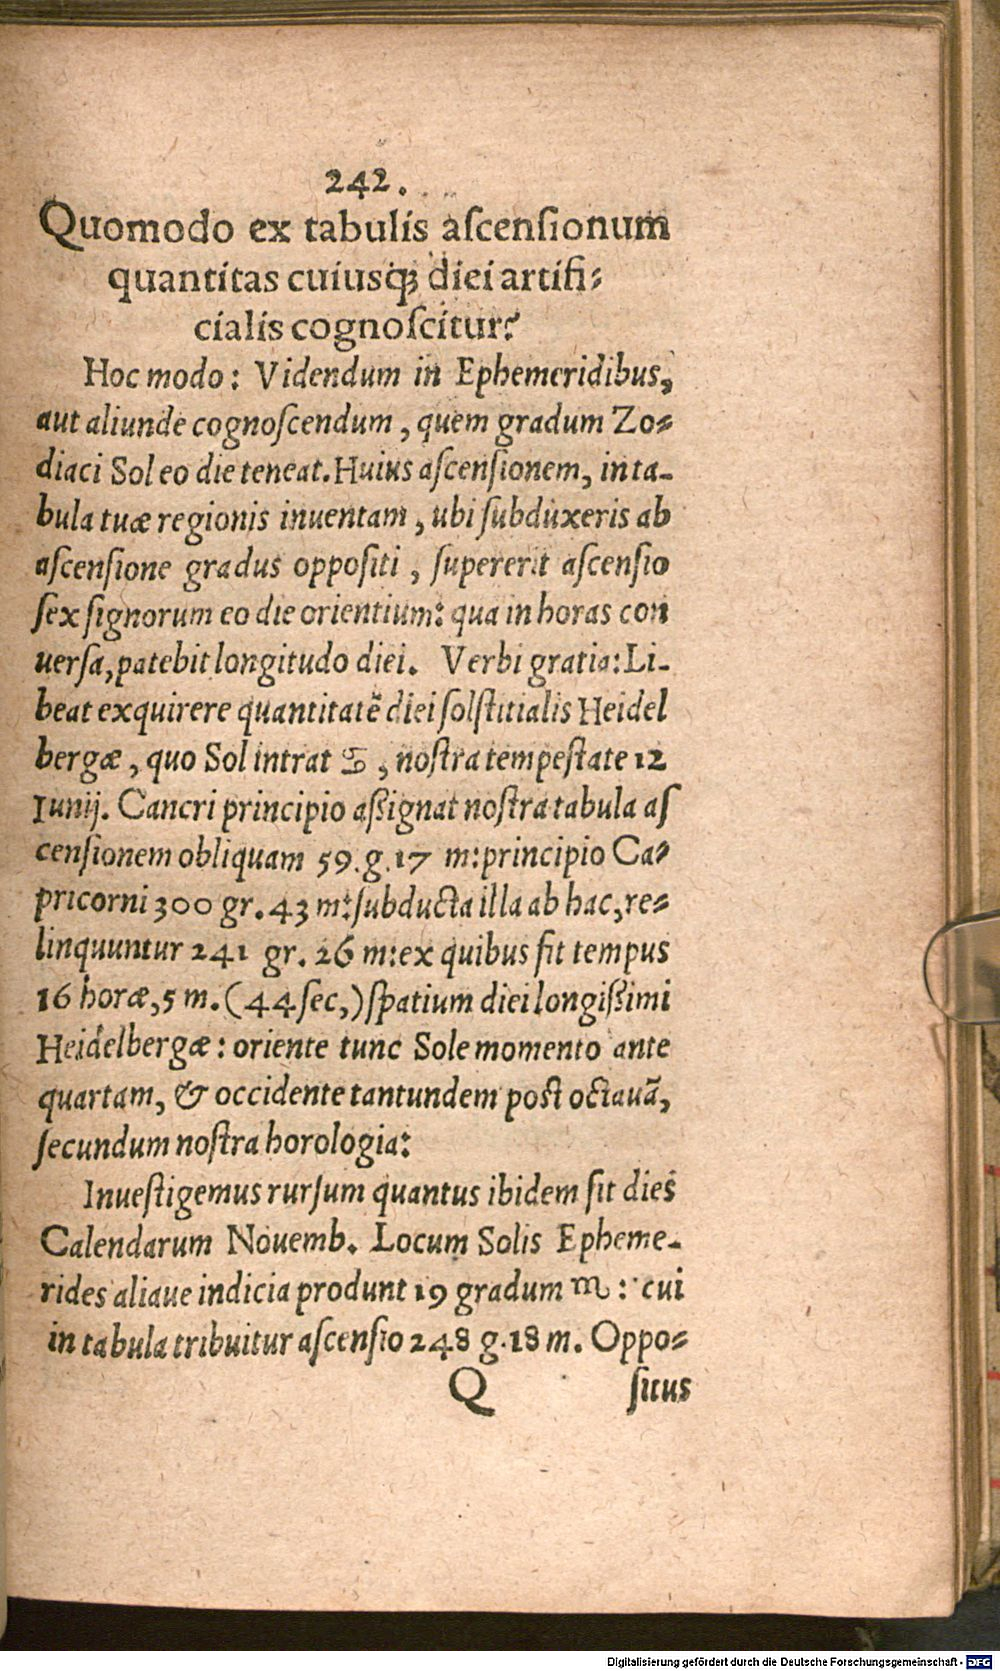 242.
Quomodo ex tabulis aſcenſionum
quantitas cuiusꝗ̃ diei artifi⸗
cialis cognoſcitur?
Hoc modo: Videndum in Ephemeridibus,
aut aliunde cognoſcendum, quem gradum Zo⸗
diaci Sol eo die teneat. Huius aſcenſionem, in ta-
bula tuæ regionis inuentam, ubi ſubduxeris ab
aſcenſione gradus oppoſiti, ſupererit aſcenſio
ſex ſignorum eo die orientium: qua in horas con
uerſa, patebit longitudo diei. Verbi gratia: Li-
beat exquirere quantitatē diei ſolſtitialis Heidel
bergæ, quo Sol intrat ♋, noſtra tempeſtate 12
Iunij. Cancri principio aßignat noſtra tabula aſ
cenſionem obliquam 59. g. 17 m: principio Ca⸗
pricorni 300 gr. 43 m: ſubducta illa ab hac, re⸗
linquuntur 241 gr. 26 m: ex quibus fit tempus
16 horæ, 5 m. (44 ſec,) ſpatium diei longißimi
Heidelbergæ: oriente tunc Sole momento ante
quartam, & occidente tantundem poſt octauã,
ſecundum noſtra horologia:
Inueſtigemus rurſum quantus ibidem ſit dies
Calendarum Nouemb. Locum Solis Epheme-
rides aliaue indicia produnt 19 gradum ♏: cui
in tabula tribuitur aſcenſio 248 g. 18 m. Oppo⸗
Q ſitus
Digitalisierung gefördert durch die Deutsche Forschungsgemeinschaft - DFG